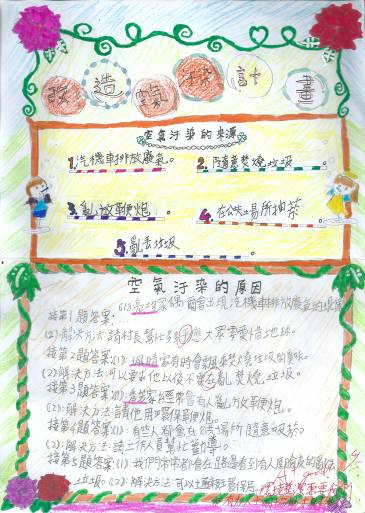 改造空氣汙染計畫
空氣汙染的來源
1.汽機車排放廢氣。
2.隨意焚燒垃圾。
3.亂放鞭炮。
4.在公共場所抽菸。
5.亂丟垃圾。
空氣汙染的原因
接第1題答案:(1)家偶爾會出現汽機車排放廢氣的現象
(2):解決方法:請村長幫忙 大眾要愛惜地球。
接第2題答案:(1):家有時會飄來焚燒垃圾的臭味。
(2)解決方法:可以要求他以後不要在亂焚燒垃圾。
接第3題答案:(1)家經常會有人亂放鞭炮。
(2):解決方法:請他用環保鞭炮。
接第4題答案(1):有些人都會在
(2):解決方法:請工作人員幫忙勸導。
接第5題答案:(1)我們常常都會在路邊看到有人
垃圾。(2):解決方法:可以通報環保局。